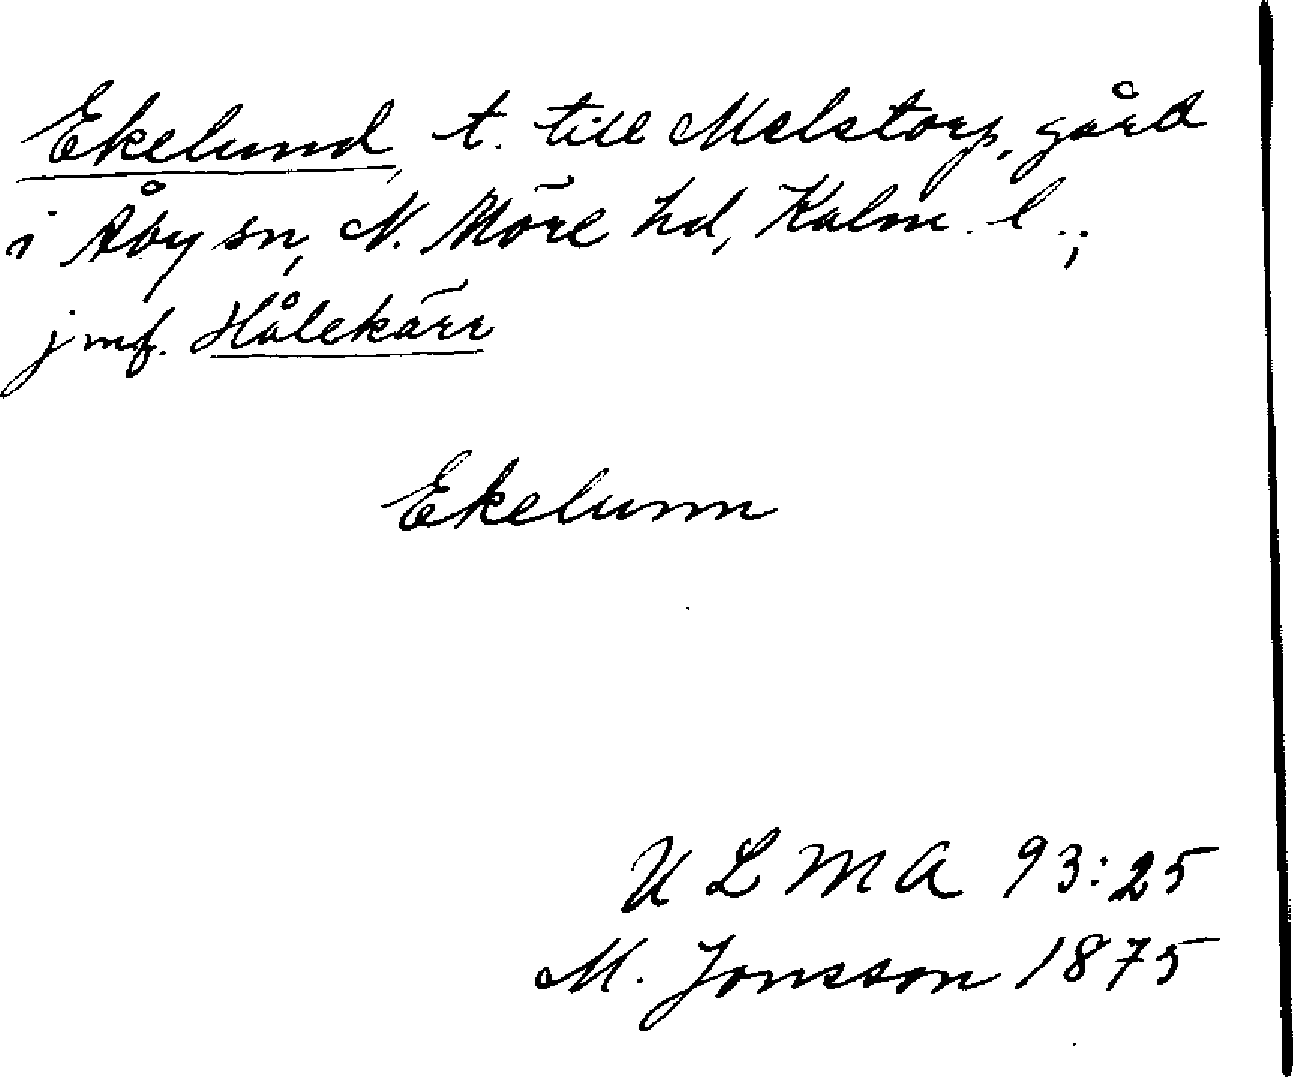 Ekelund, t. till Melstorp, gård
i Åby sn, N. Möre hd, Kalm. l.;
jmf. Hålekärr
Ekelunn
ULMA 93:25
M. Jonsson 1875